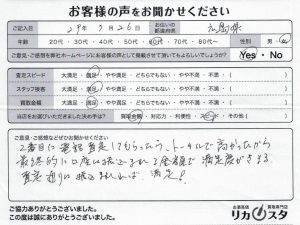 お客様の声をお聞かせください
ご記入日 29年3月26日 お住いの都道府県 広島県
年齢 20代・30代・40代・50代・60代・70代・80代〜 性別 男・女
ご意見・ご感想を弊社ホームページにお客様の声として掲載させて頂いてもよろしいでしょうか? Yes・No
査定スピード 大満足・満足・やや満足・どちらでもない・やや不満・不満
スタッフ接客 大満足・満足・やや満足・どちらでもない・やや不満・不満
買取金額 大満足・満足・やや満足・どちらでもない・やや不満・不満
当店をお選びいただきました決め手は? 買取金額・対応力・利便性・その他(
◎ご意見・ご感想などぜひお聞かせください
2番目に電話査定してもらったうち、トータルで高かったから
最終的に
満足度が
査定通りに振込まれれば、満足!
ご協力ありがとうございました。
この度は誠にありがとうございました。
お酒高価 買取専門店
リカスタ